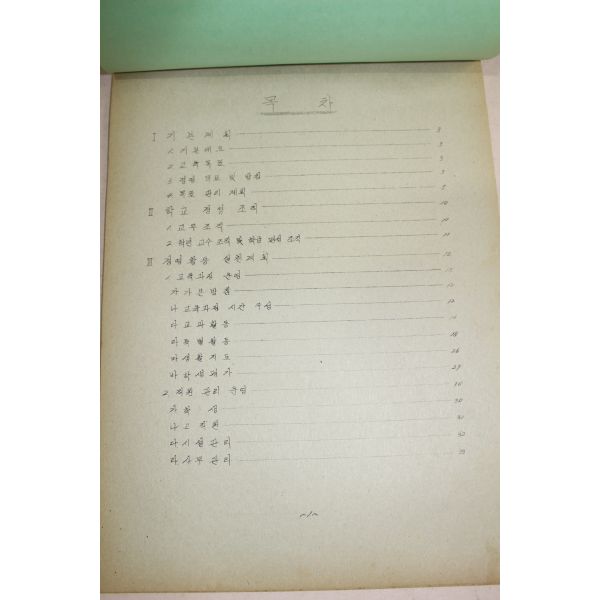 목 차
I 기본계획 3
1. 기본개요 3
2. 교육목표 3
3. 경영 목표 및 방침 3
4. 목표 관리 계획 5
II 학교 경영 조직 10
1. 교무 조직 10
2. 학년 교수 조직 및 학급 편성 조직 11
III 경영활동 실천계획 12
1. 교육과정 운영
가 기본방침
나 교육과정 시간 구성 12
다 교과활동
라 특별활동 18
마 생활지도 26
바 학생평가 29
2. 직원 관리 운영
가 학생 30
나 교직원 31
다 시설관리 32
라 사무관리 33
~1~